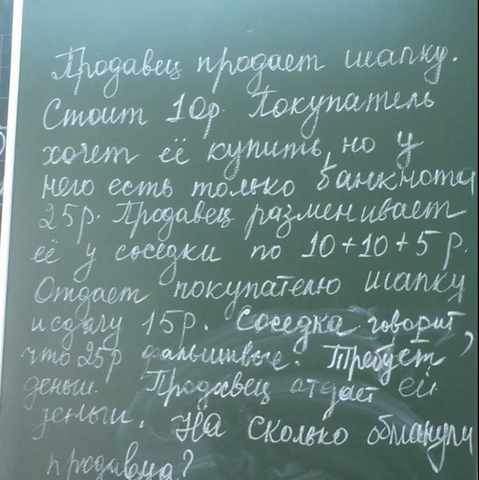 Продавец продает шапку.
Стоит 10р. Покупатель
хочет её купить, но у
него есть только банкнота
25р. Продавец разменивает
её у соседки по 10+10+5 р.
Отдает покупателю шапку
и сдачу 15р. Соседка говорит,
что 25р фальшивые. Требует
деньги. Продавец отдает ей
деньги. На сколько обманули
продавца?